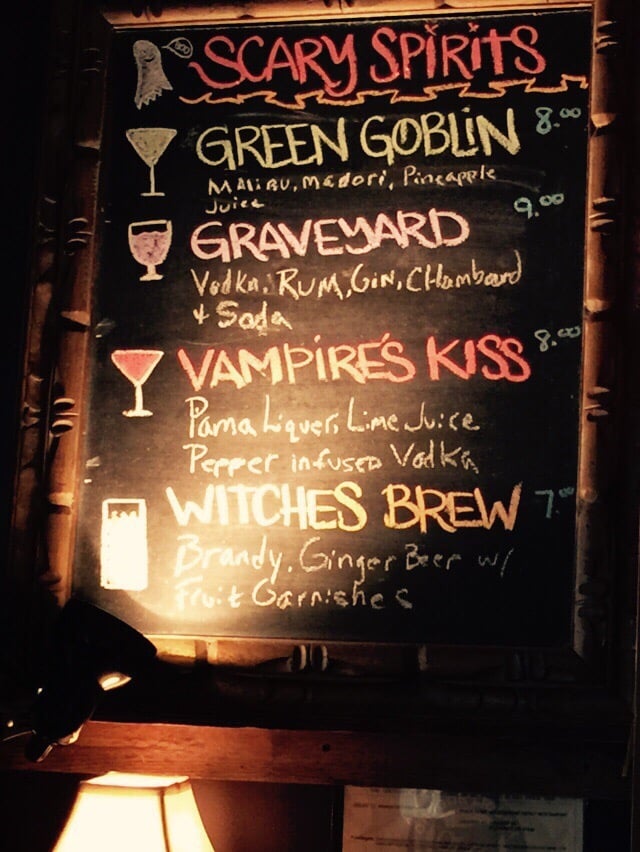 BOO
SCARY SPIRITS
GREEN GOBLIN 8.00
MALIBU, MADORI, Pineapple
Juice
GRAVEYARD 9.00
Vodka, RUM, Gin, CHambord
+ Soda
VAMPIRE'S KISS 8.00
Pama Liquer, Lime Juice
Pepper infused Vodka
WITCHES BREW 7.00
Brandy, Ginger Beer w/
Fruit Garnishes